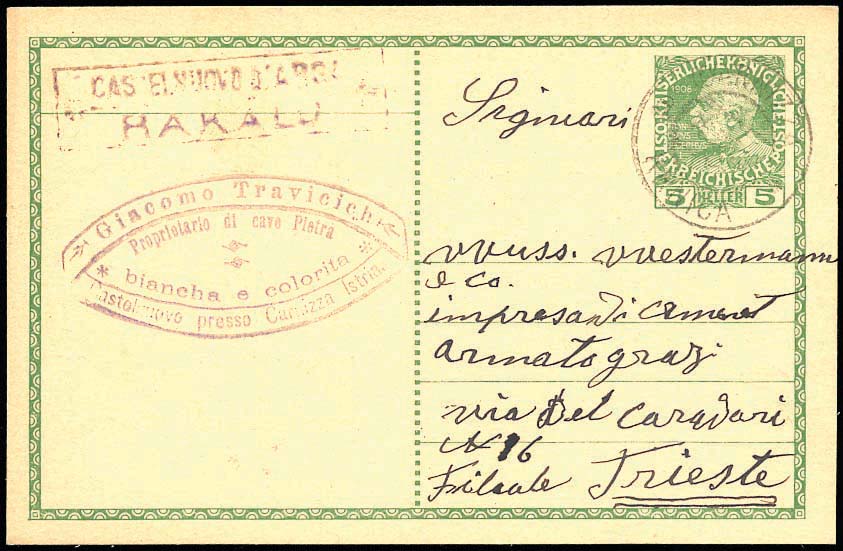 CASTELNUOVO D'ARSA
RAKALJ
Giacomo Travicich
Proprietario di cave Pietra
* biancha e colorita *
Castelnuovo presso Carnizza Istria.
1908
KAISERLICHEKÖNIGLICHE
ÖSTERREICHISCHEPOST
5 HELLER 5
Signiori
vvuss. vvestermann
e co.
impresa di cement
armato grazi
via del Caradari
N 16
Filiale Trieste